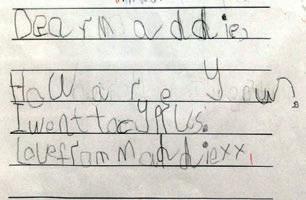 Dear Maddie,
How are Yooun.
I went to cyprus.
love from Maddiexx,